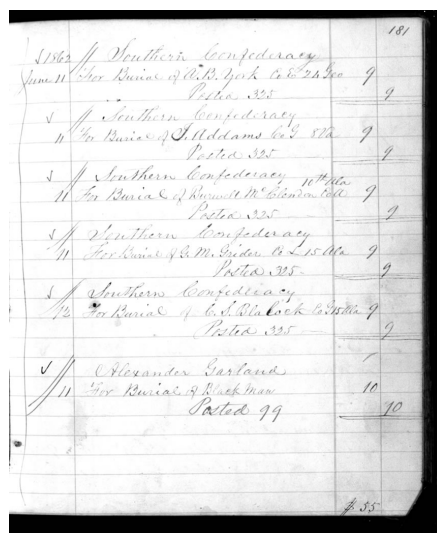 181
1862 Southern Confederacy
June 11 For Burial of A. B. York Co E 24 Geo 9
Posted 325 9
Southern Confederacy
11 For Burial of J. Addams Co G 8 Va 9
Posted 325 9
Southern Confederacy
11 For Burial of Burwell McClendon Co A 10th Ala 9
Posted 325 9
Southern Confederacy
11 For Burial of G. M. Grider Co L 15 Ala 9
Posted 325 9
Southern Confederacy
12 For Burial of C. S. Blalock Co G 15 Ala 9
Posted 325 9
Alexander Garland
11 For Burial of Black Man 10
Posted 99 10
$ 55